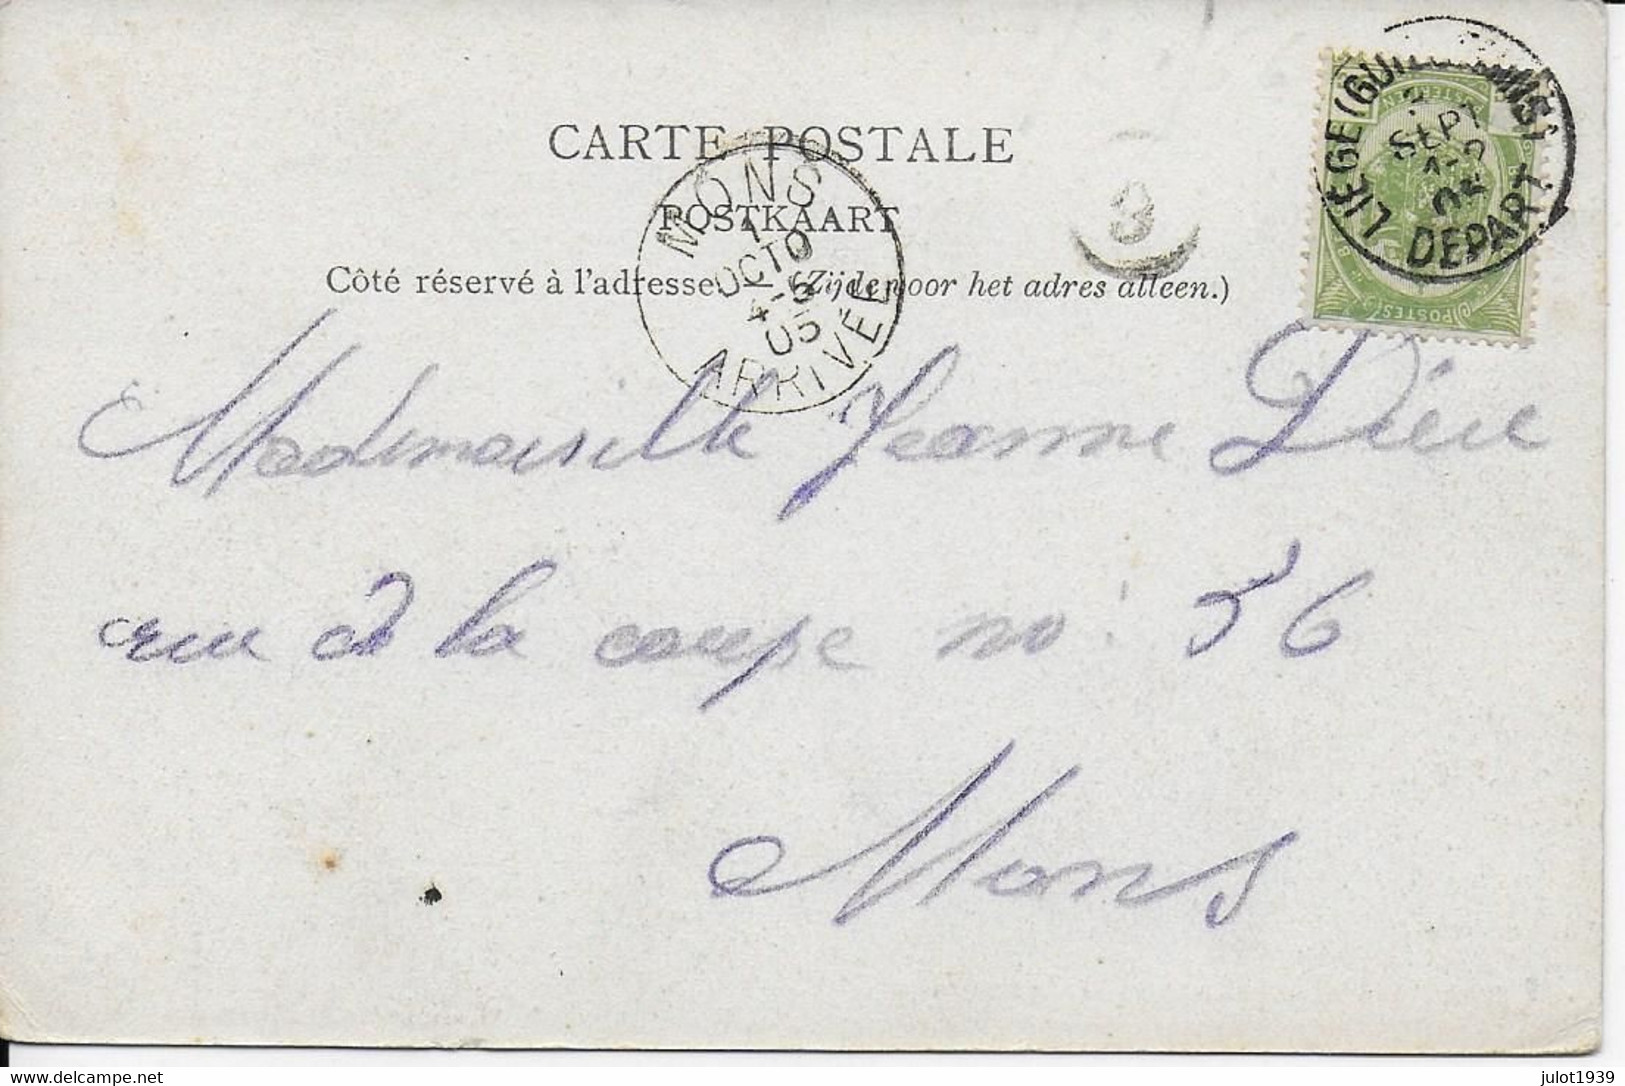 CARTE POSTALE
POSTKAART
Côté réservé à l'adresse. — (Zijde voor het adres alleen.)
MONS
1
OCTO
4-5
05
ARRIVÉE
3
LIEGE (GUILLEMINS)
SEPT
05
DEPART
POSTES
Mademoiselle Jeanne
rue à la coupe no: 56
Mons
delcampe.net
julot1939